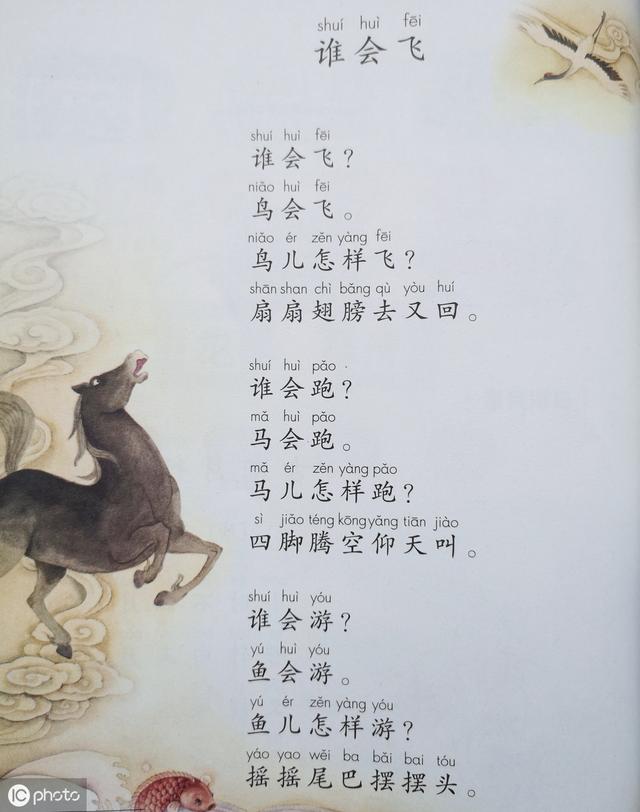 shuí huì fēi
谁会飞
shuí huì fēi
谁会飞？
niǎo huì fēi
鸟会飞。
niǎo ér zěn yàng fēi
鸟儿怎样飞？
shān shan chì bǎng qù yòu huí
扇扇翅膀去又回。
shuí huì pǎo
谁会跑？
mǎ huì pǎo
马会跑。
mǎ ér zěn yàng pǎo
马儿怎样跑？
sì jiǎo téng kōng yǎng tiān jiào
四脚腾空仰天叫。
shuí huì yóu
谁会游？
yú huì yóu
鱼会游。
yú ér zěn yàng yóu
鱼儿怎样游？
yáo yao wěi ba bǎi bai tóu
摇摇尾巴摆摆头。
iC photo